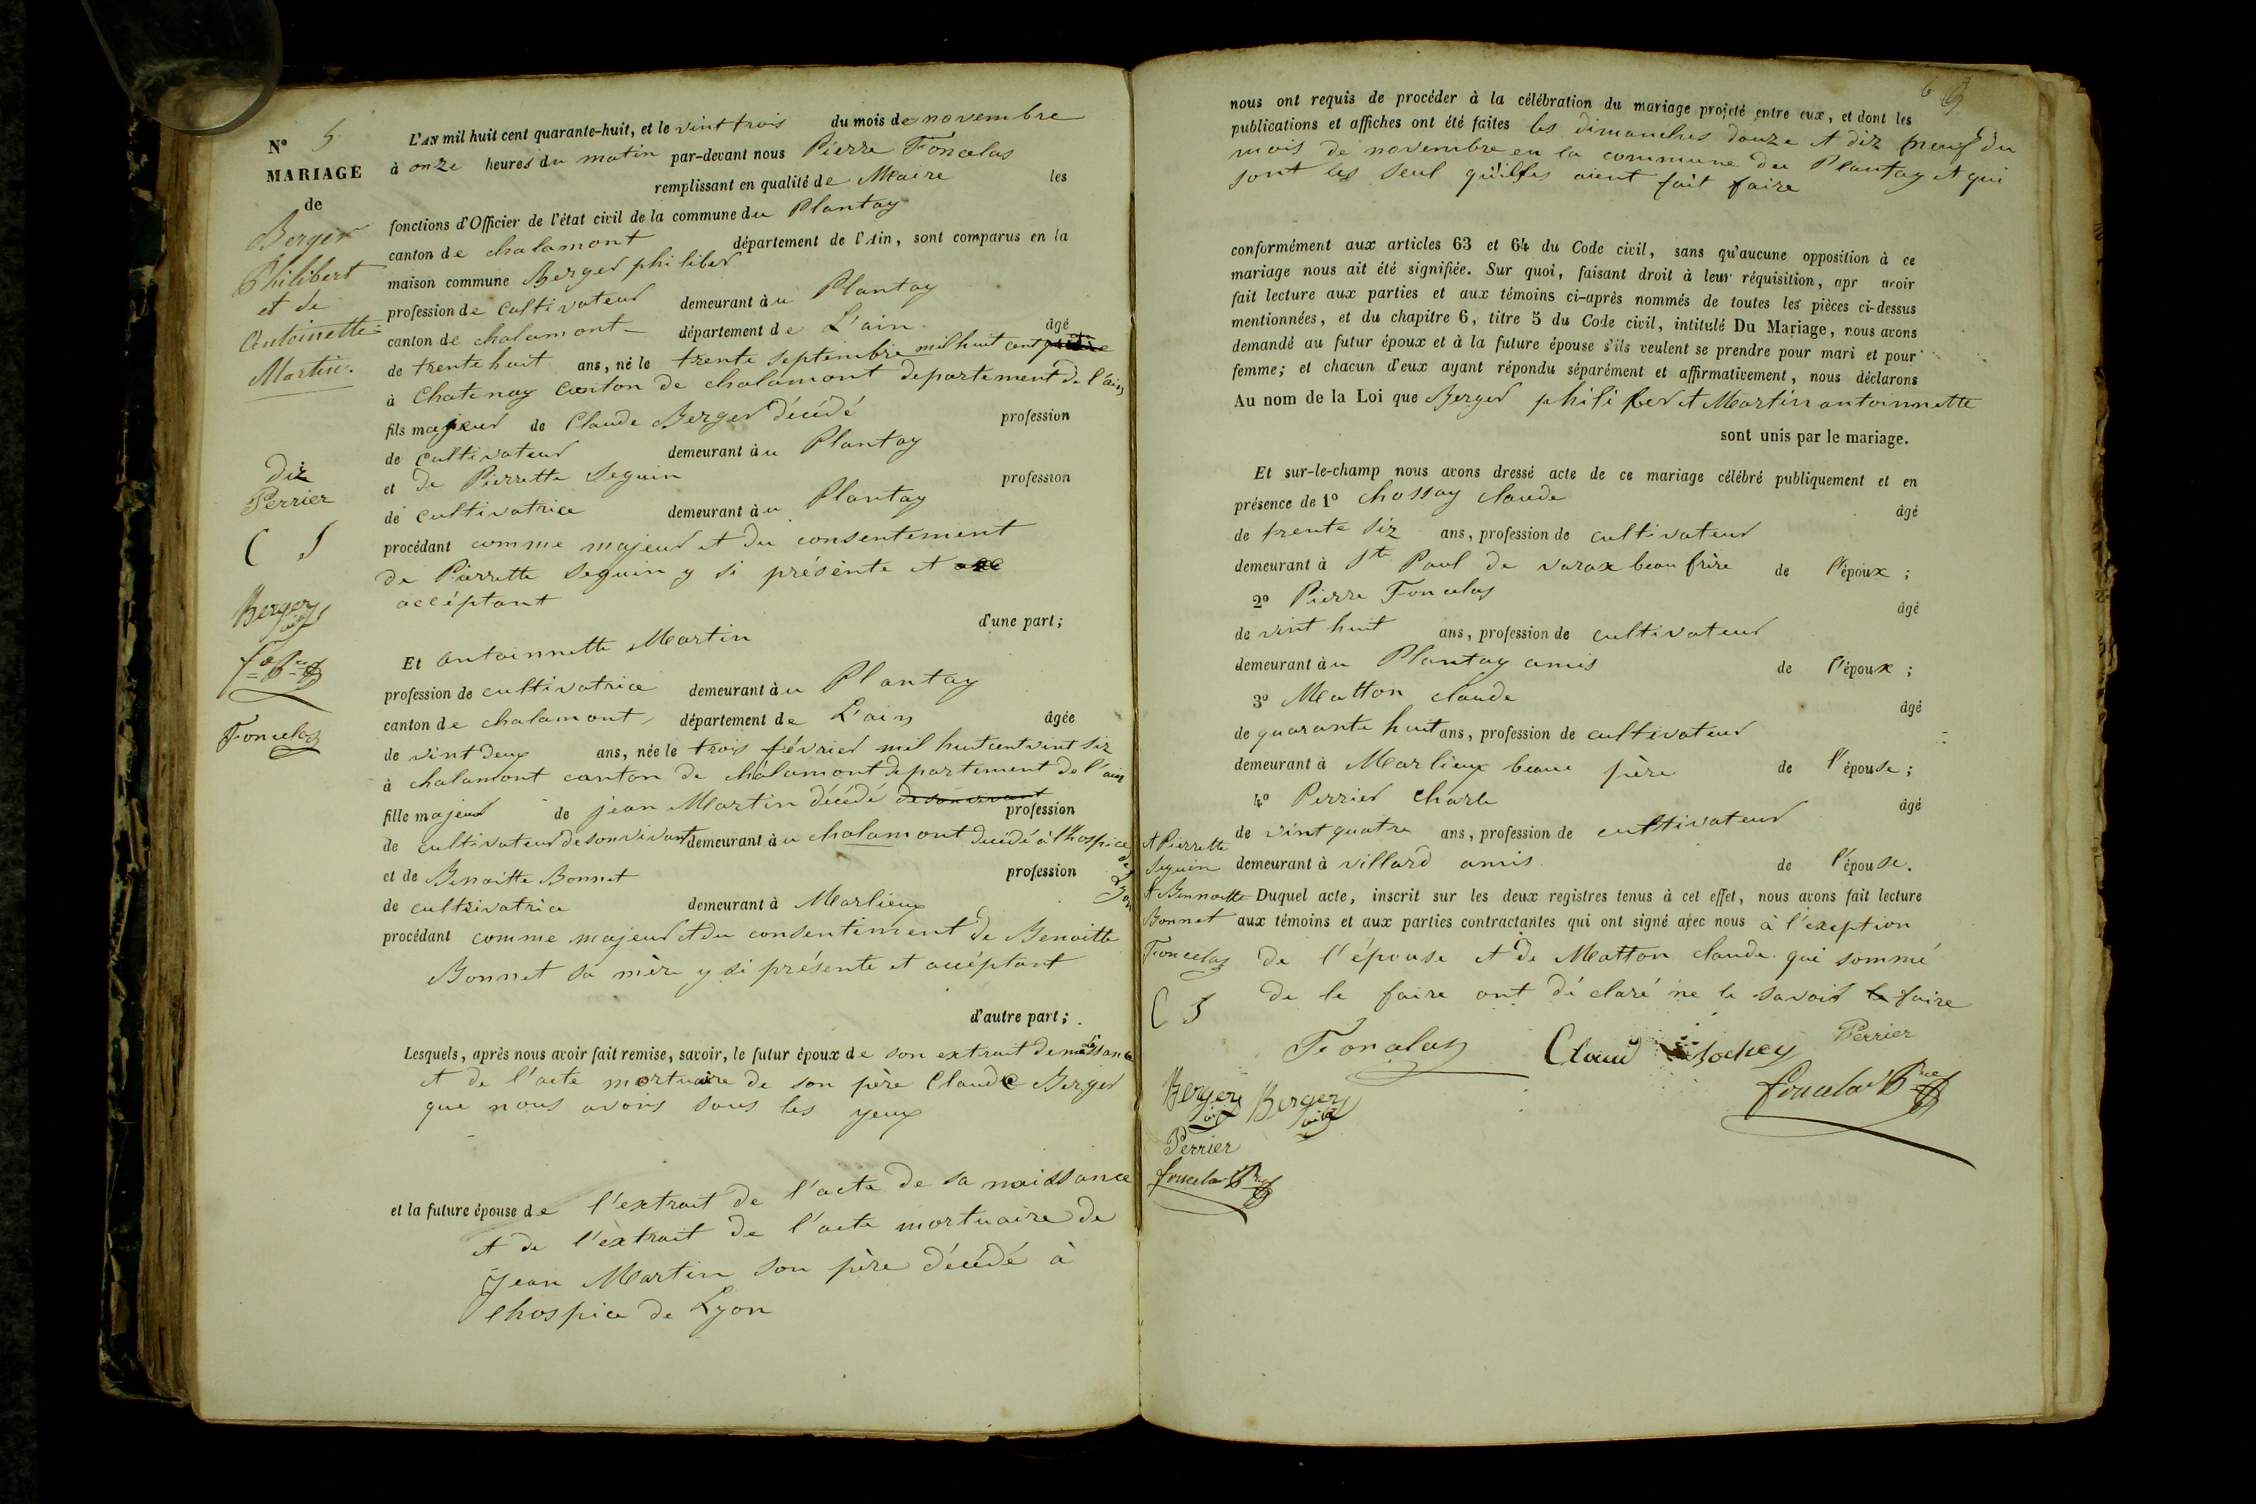 N° 5
MARIAGE
de
Berger
Philibert
et de
Antoinette
Martin.
dix
Perrier
C S
Berger
Foncelas
L'AN mil huit cent quarante-huit, et le vint trois du mois de novembre
à onze heures du matin par-devant nous Pierre Foncelas
remplissant en qualité de Maire les
fonctions d'Officier de l'état civil de la commune du Plantay
canton de chalamont département de l'Ain, sont comparus en la
maison commune Berger philiber
profession de cultivateur demeurant àu Plantay
canton de chalamont département de L'ain âgé
de trente huit ans, né le trente septembre mil huit cent
à Chatenay canton de chalamont departement de l'ain
fils majeur de Claude Berger décédé profession
de cultivateur demeurant àu Plantay
et de Pierrette Seguin profession
de cultivatrice demeurant àu Plantay
procédant comme majeur et du consentement
de Pierrette Seguin y si présente et
accéptant
d'une part;
Et antoinnette Martin
profession de cultivatrice demeurant àu Plantay
canton de chalamont département de L'ain âgée
de vint deux ans, née le trois février mil huit cent vint six
à chalamont canton de chalamont departement de l'ain
fille majeur de jean Martin décédé de son vivant profession
de cultivateur de son vivant demeurant àu chalamont decédé à l'hospice de Lyon
et de Benoitte Bonnet profession
de cultivatrice demeurant à Marlieux
procédant comme majeur et du consentement de Benoitte
Bonnet sa mère y si présente et accéptant
d'autre part;
Lesquels, après nous avoir fait remise, savoir, le futur époux de son extrait de naissance
et de l'acte mortuaire de son père Claude Berger
que nous avons sous les yeux
et la future épouse de l'extrait de l'acte de sa naissance
et de l'extrait de l'acte mortuaire de
Jean Martin son père décédé à
lhospice de Lyon
6
nous ont requis de procéder à la célébration du mariage projeté entre eux, et dont les
publications et affiches ont été faites les dimanches douze et dix neuf du
mois de novembre en la commune du Plantay et qui
sont les seul qu'il les aient fait faire
conformément aux articles 63 et 64 du Code civil, sans qu'aucune opposition à ce
mariage nous ait été signifiée. Sur quoi, faisant droit à leur réquisition, apr avoir
fait lecture aux parties et aux témoins ci-après nommés de toutes les pièces ci-dessus
mentionnées, et du chapitre 6, titre 5 du Code civil, intitulé Du Mariage, nous avons
demandé au futur époux et à la future épouse s'ils veulent se prendre pour mari et pour
femme; et chacun d'eux ayant répondu séparément et affirmativement, nous déclarons
Au nom de la Loi que Berger philiber et Martin antoinnette
sont unis par le mariage.
Et sur-le-champ nous avons dressé acte de ce mariage célébré publiquement et en
présence de 1° chossay claude âgé
de trente six ans, profession de cultivateur
demeurant à St Paul de varax beau frère de l'époux;
2° Pierre Foncelas âgé
de vint huit ans, profession de cultivateur
demeurant àu Plantay amis de l'époux;
3° Matton claude âgé
de quarante huit ans, profession de cultivateur
demeurant à Marlieux beau père de l'épouse;
4° Perrier Charle âgé
de vint quatre ans, profession de cultivateur
demeurant à villard amis de l'épouse.
Duquel acte, inscrit sur les deux registres tenus à cet effet, nous avons fait lecture
aux témoins et aux parties contractantes qui ont signé avec nous à l'exeption
de l'épouse et de Matton claude qui sommé
de le faire ont déclaré ne le savoir le faire
et Pierrette
Seguin
et Bennoitte
Bonnet
Foncelas
C S
Berger
Perrier
Foncelas
Foncelas Claud Perrier
Berger